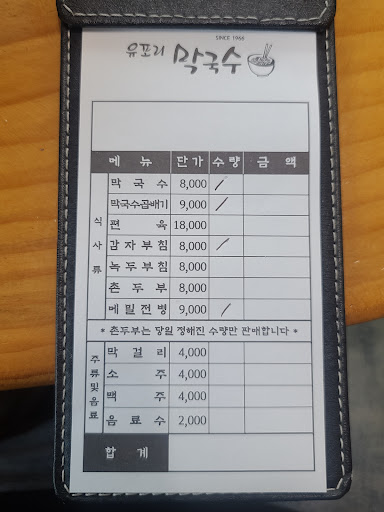 SINCE 1966
유포리 막국수
메뉴 단가 수량 금액
식사류
막국수 8,000 /
막국수곱배기 9,000 /
편육 18,000
감자부침 8,000 /
녹두부침 8,000
촌두부 8,000
메밀전병 9,000 /
* 촌두부는 당일 정해진 수량만 판매합니다 *
주류및음료
막걸리 4,000
소주 4,000
맥주 4,000
음료수 2,000
합계